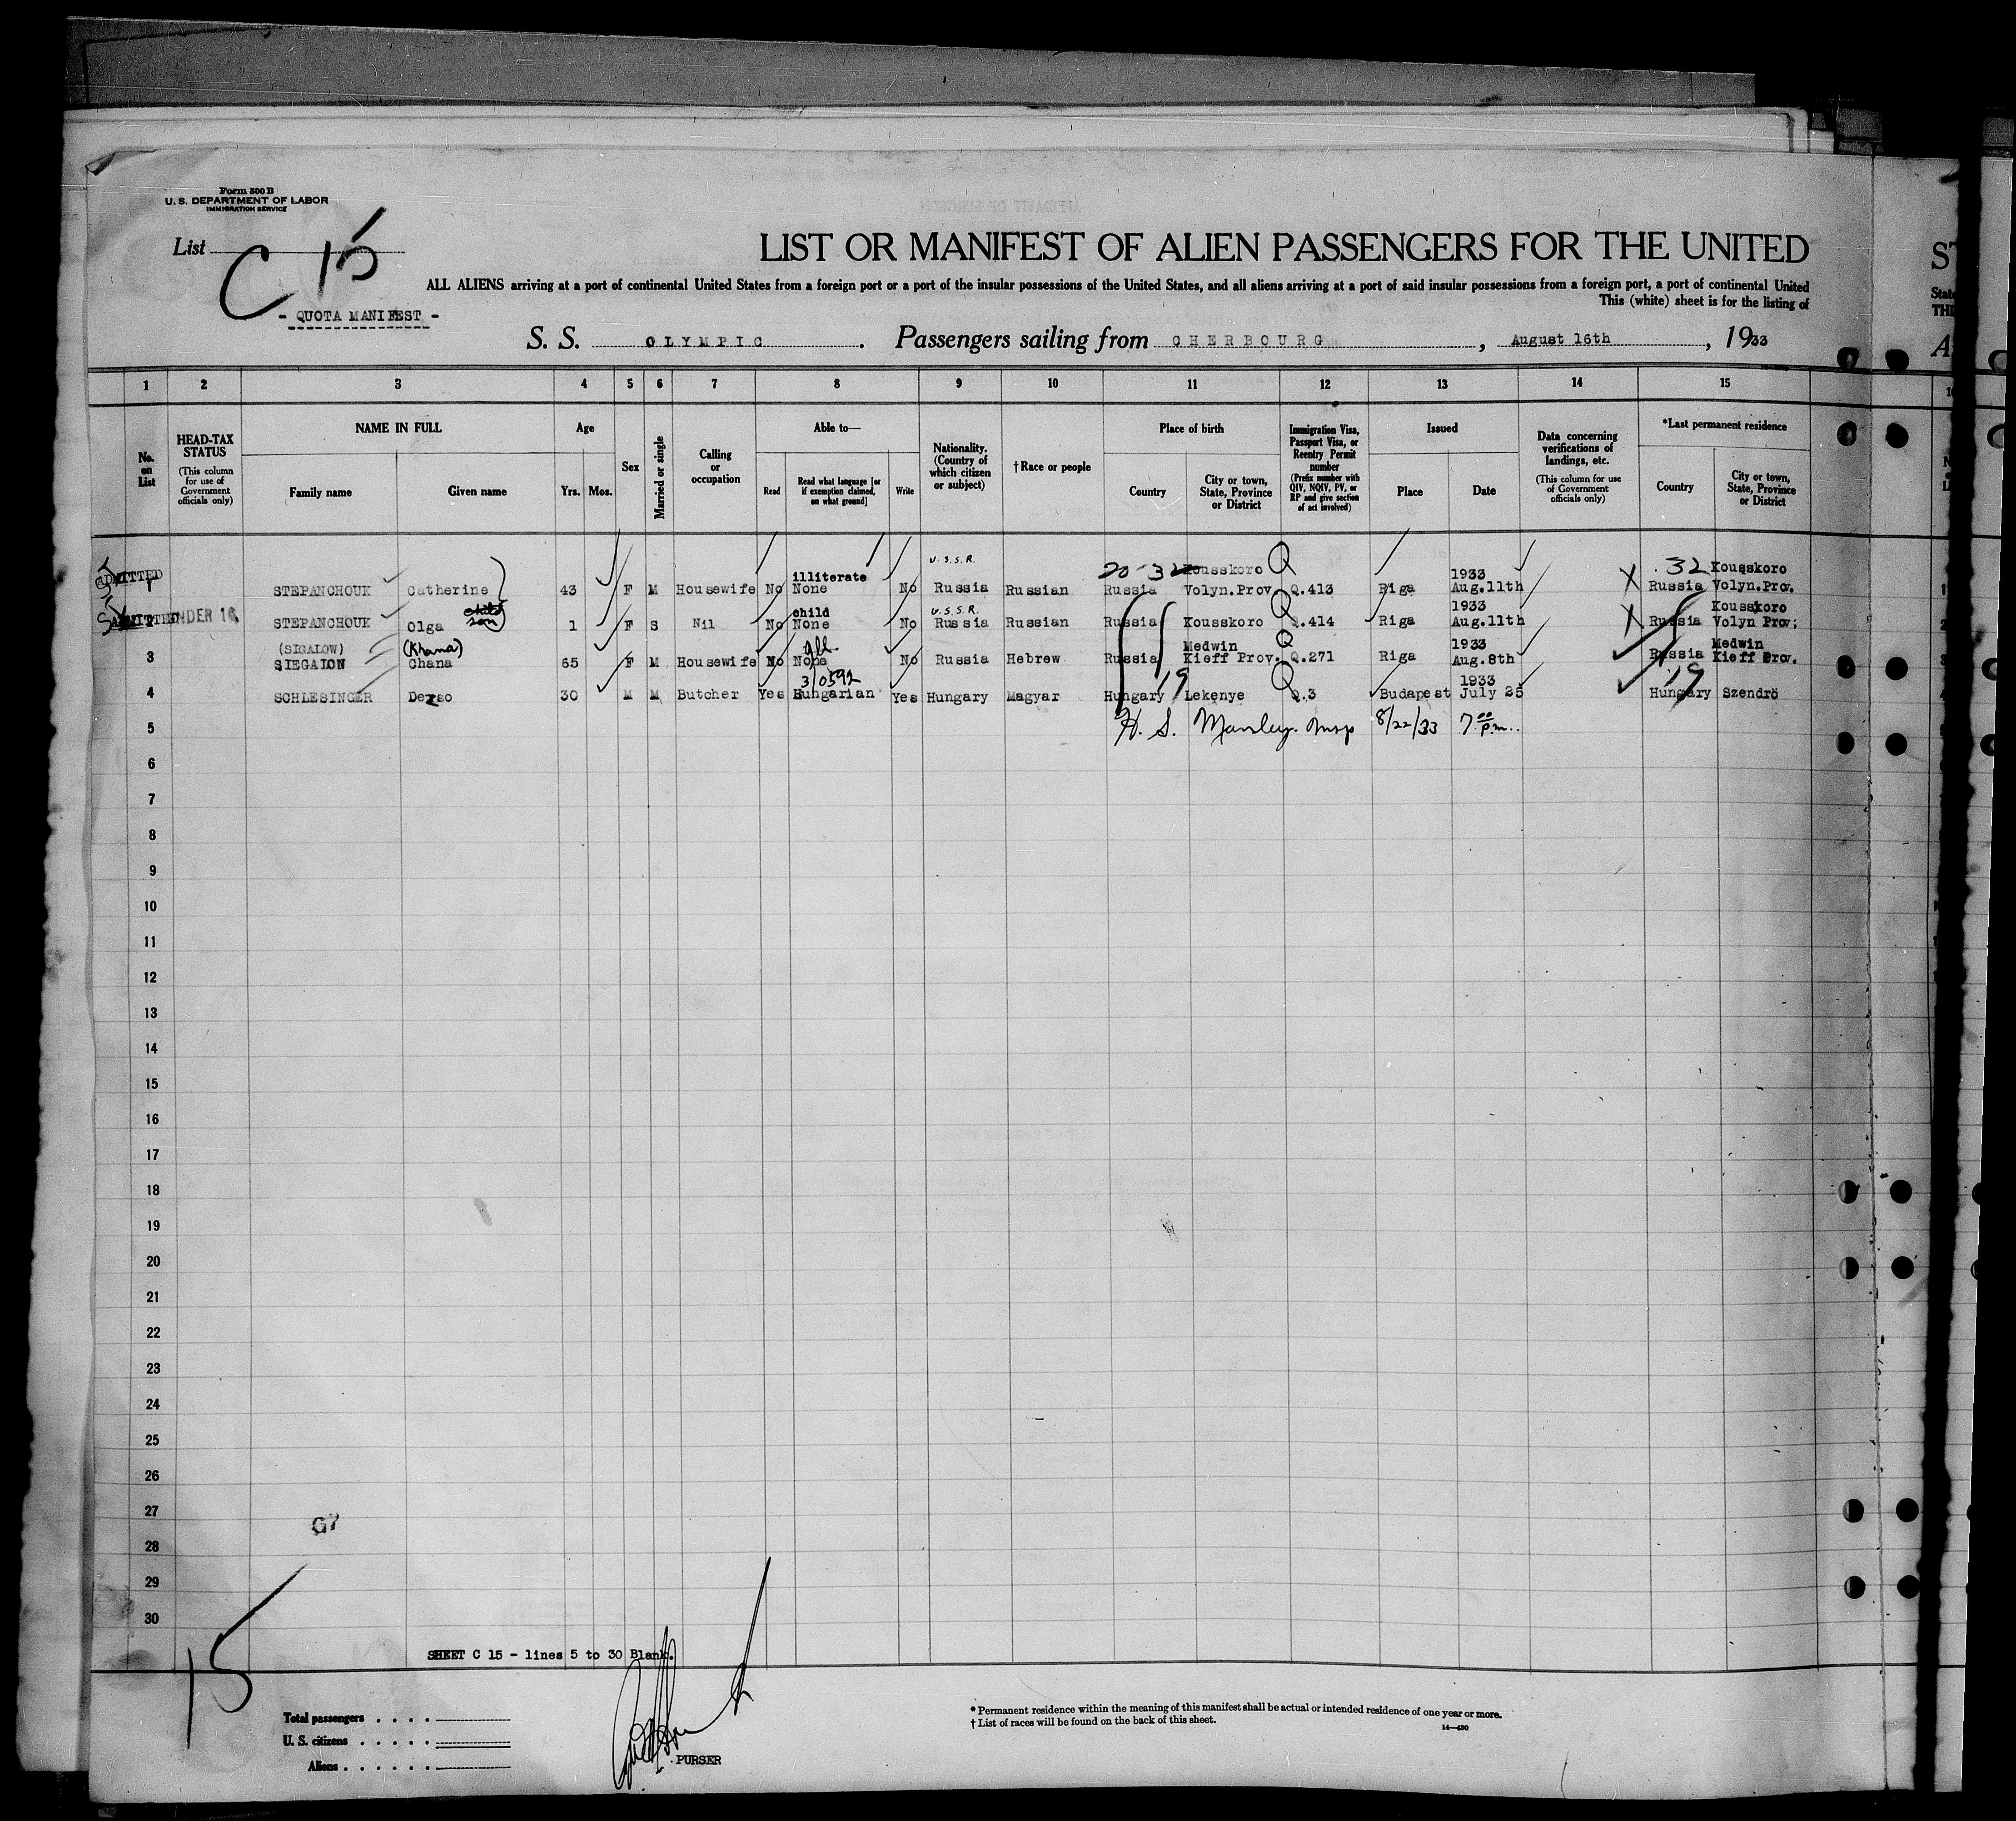 Form 500 B
U. S. DEPARTMENT OF LABOR
IMMIGRATION SERVICE
List C 15
- QUOTA MANIFEST -
LIST OR MANIFEST OF ALIEN PASSENGERS FOR THE UNITED
ALL ALIENS arriving at a port of continental United States from a foreign port or a port of the insular possessions of the United States, and all aliens arriving at a port of said insular possessions from a foreign port, a port of continental United
This (white) sheet is for the listing of
S. S. OLYMPIC . Passengers sailing from CHERBOURG , August 16th , 1933
1 2 3 4 5 6 7 8 9 10 11 12 13 14 15
No. on List
HEAD-TAX STATUS
(This column for use of Government officials only)
NAME IN FULL
Family name
Given name
Age
Yrs. Mos.
Sex
Married or single
Calling or occupation
Able to—
Read
Read what language [or if exemption claimed, on what ground]
Write
Nationality. (Country of which citizen or subject)
† Race or people
Place of birth
Country
City or town, State, Province or District
Immigration Visa, Passport Visa, or Reentry Permit number
(Prefix number with QIV, NQIV, PV, or RP and give section of act involved)
Issued
Place
Date
Data concerning verifications of landings, etc.
(This column for use of Government officials only)
*Last permanent residence
Country
City or town, State, Province or District
U.S.S.R. 20-32 Kousskoro Q 32 Kousskoro
illiterate 1933
ADMITTED 1 STEPANCHOUK Catherine 43 F M Housewife No None No Russia Russian Russia Volyn.Prov. Q.413 Riga Aug.11th Russia Volyn.Prov.
child son child U.S.S.R. Q 1933 Kousskoro
ADMITTED UNDER 16 2 STEPANCHOUK Olga 1 F S Nil No None No Russia Russian Russia Kousskoro Q.414 Riga Aug.11th Russia Volyn Prov;
(SIGALOW) (Khana) ill. Medwin Q 1933 Medwin
3 SIEGALON Chana 65 F M Housewife No None No Russia Hebrew Russia Kieff Prov. Q.271 Riga Aug.8th Russia Kieff Prov.
3/0592 19 Q 1933 19
4 SCHLESINGER Dezso 30 M M Butcher Yes Hungarian Yes Hungary Magyar Hungary Lekenye Q.3 Budapest July 25 Hungary Szendrö
5 H. S. Manley. Insp 8/22/33 7 00 p.m.
6
7
8
9
10
11
12
13
14
15
16
17
18
19
20
21
22
23
24
25
26
27
28
29
30
SHEET C 15 - lines 5 to 30 Blank.
15
Total passengers . . . .
U. S. citizens . . . . .
Aliens . . . . . .
PURSER
* Permanent residence within the meaning of this manifest shall be actual or intended residence of one year or more.
† List of races will be found on the back of this sheet.
14—430